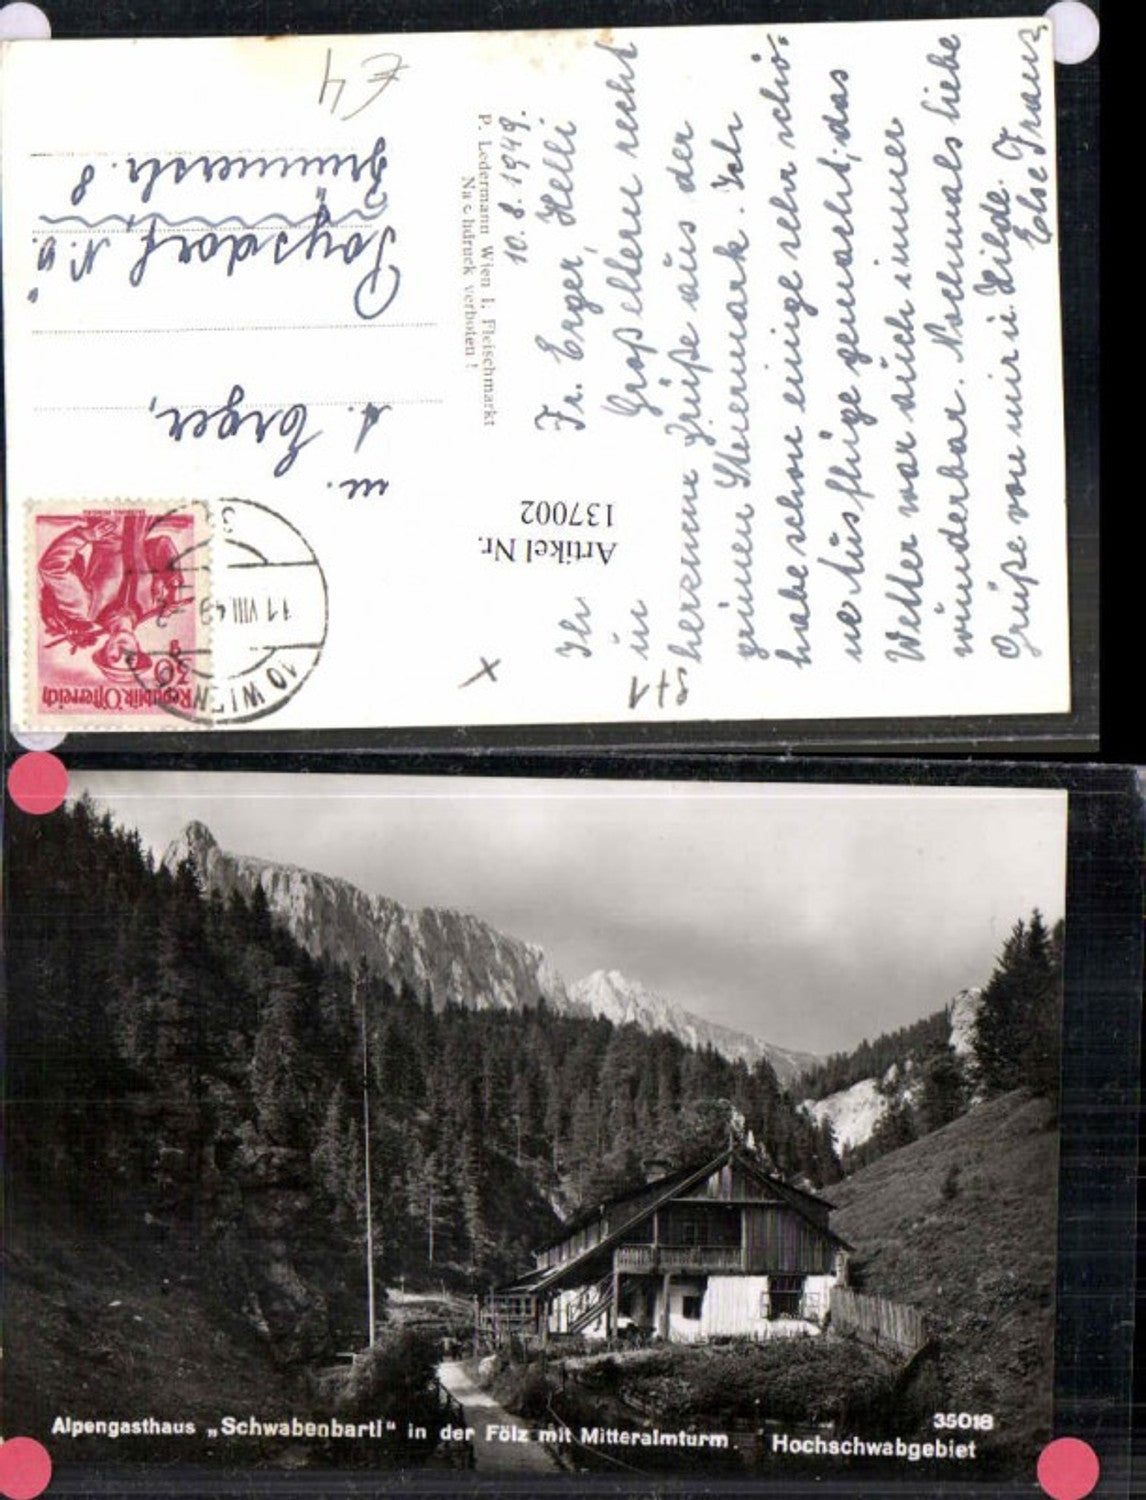 10. 8. 1949.
Fr. Erger, Helli
Großeltern recht
herzliche Grüße aus der
grünen Steiermark. Ich
habe schon einige sehr schö-
ne Ausflüge gemacht; das
Wetter war auch immer
wunderbar. Nochmals liebe
Grüße von mir u. Hilde.
Else Franz
P. Ledermann Wien I. Fleischmarkt
Nachdruck verboten !
Artikel Nr.
137002
Erger,
Poysdorf N.Ö.
Brünnerstr. 8
€ 4
Republik Österreich
30 g
10 WIEN
11 VIII 49
S+1
X
Alpengasthaus „Schwabenbartl“ in der Fölz mit Mitteralmturm. Hochschwabgebiet
35018